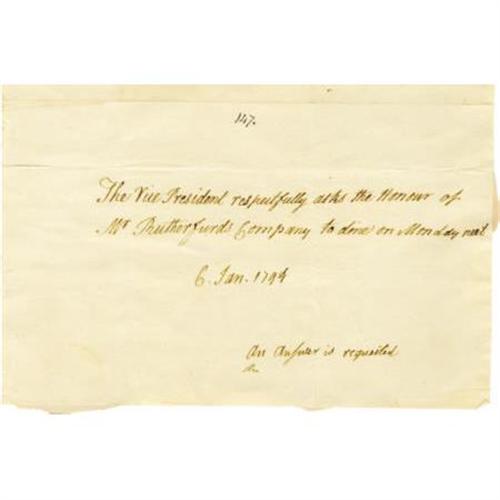 147.
The Vice President respectfully asks the Honour of
Mr Rutherfurds Company to dine on Monday next
6. Jan. 1794
An Answer is requested